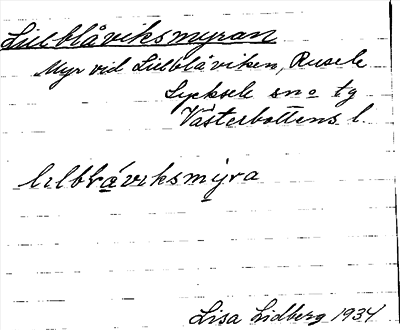 Lillblåviksmyran
Myr vid Lillblåviken, Rusele
Lycksele sn o tg
Västerbottens l.
lilbl viksmyra
Lisa Lidberg 1934